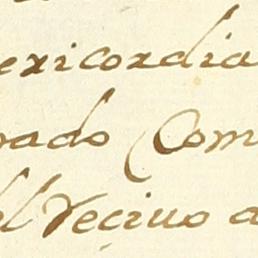 ericordia
rado Com
el Veciuo a